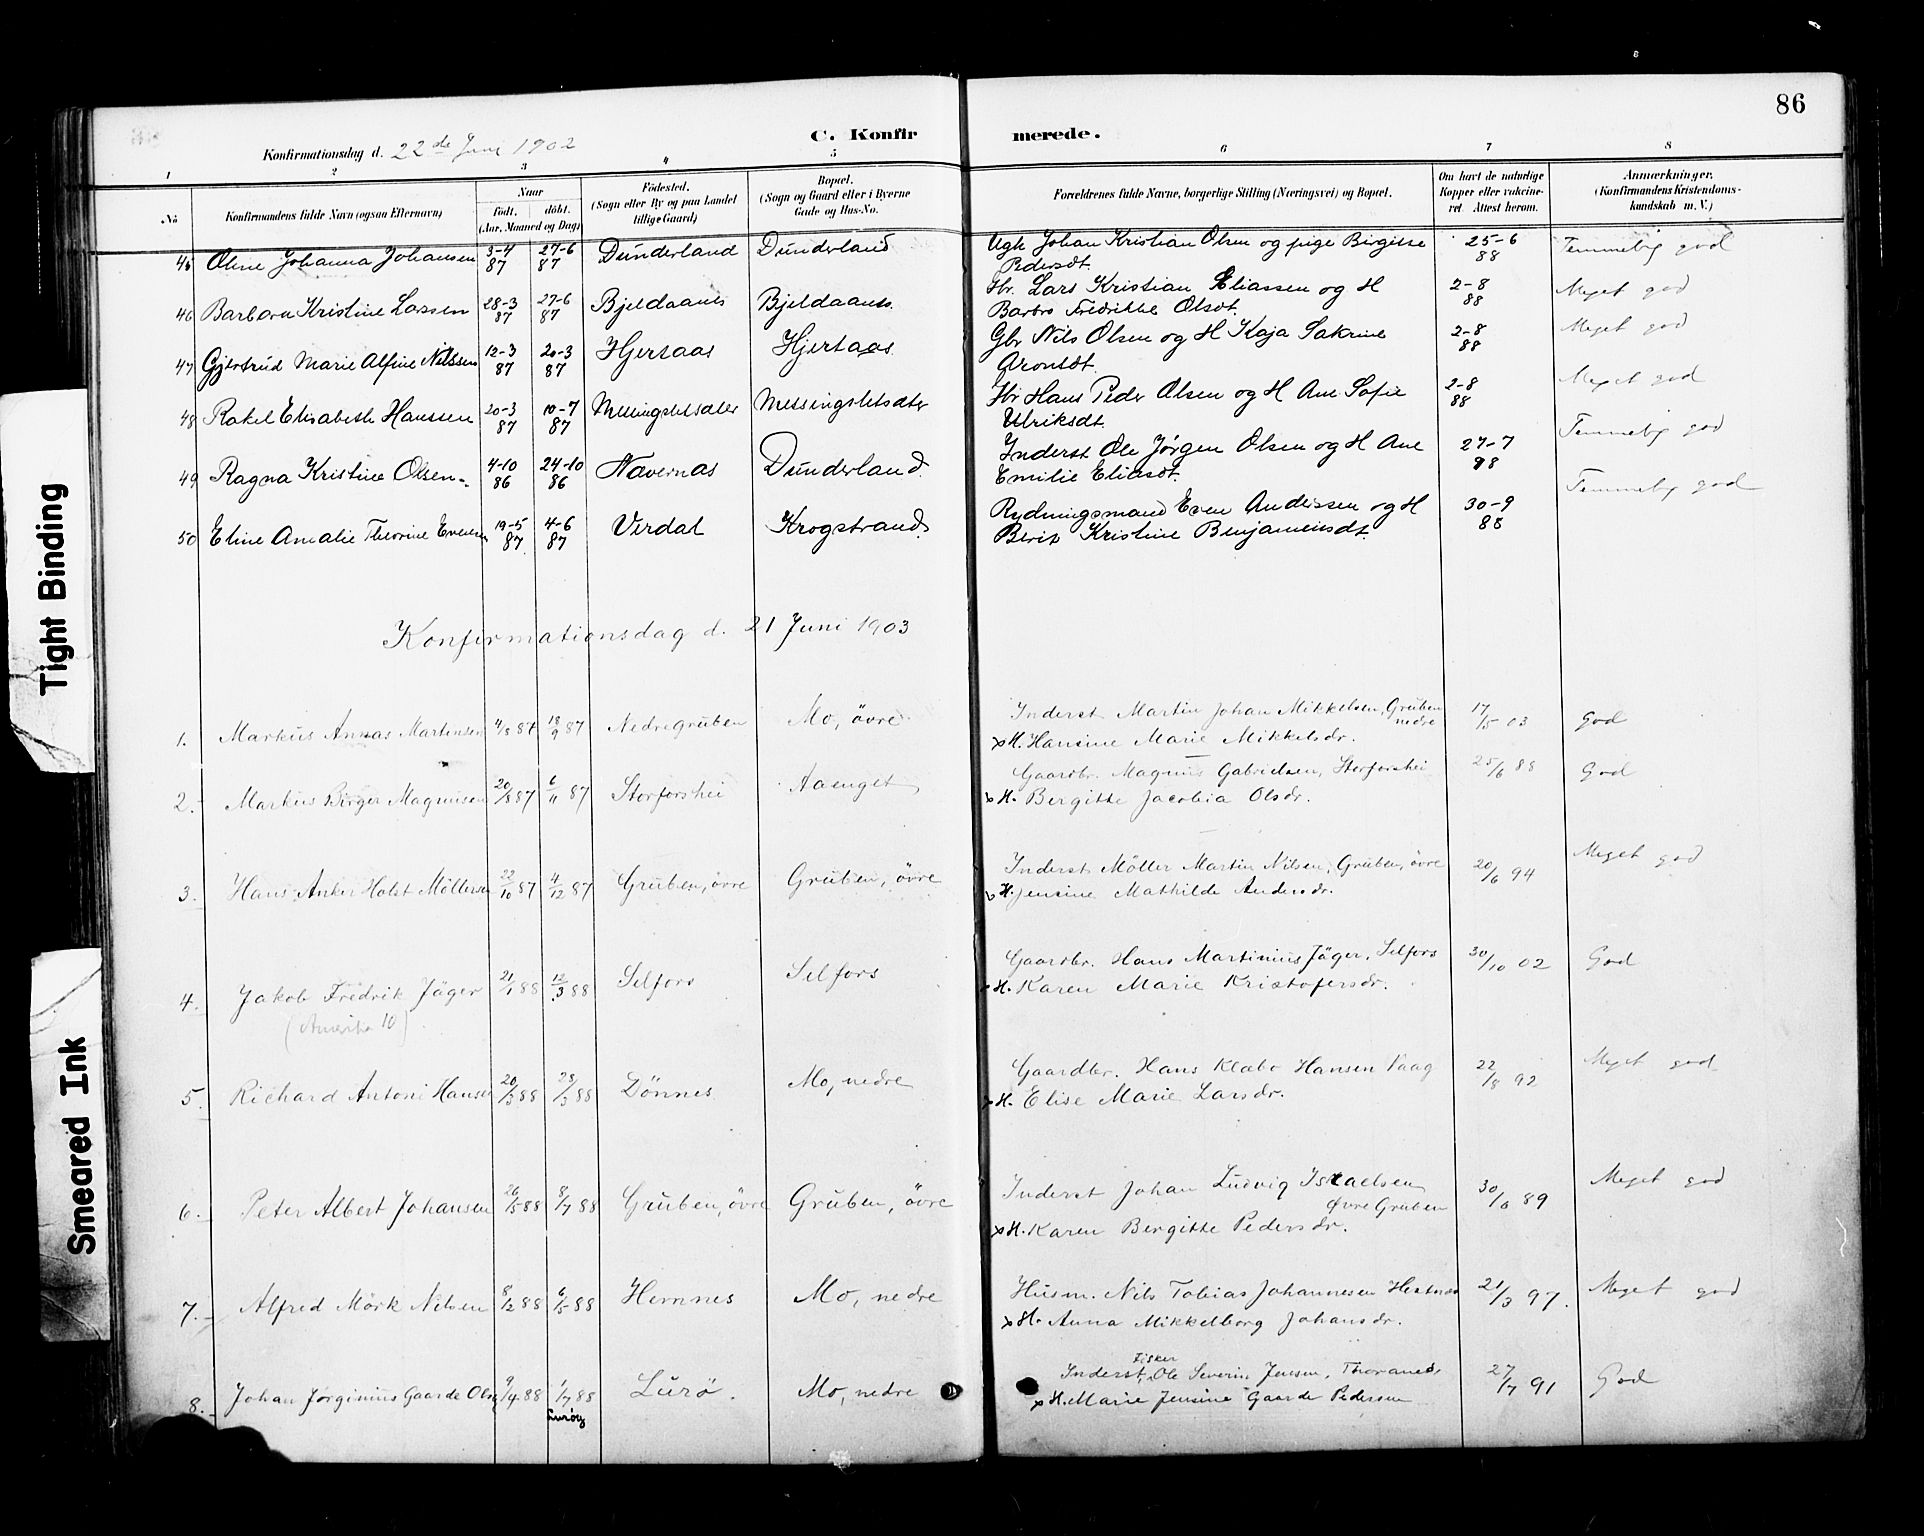 86
C. Konfirmerede.
Konfirmationsdag d. 22de Juni 1902
1 2 3 4 5 6 7 8
No
Konfirmandens fulde Navn (ogsaa Efternavn)
Naar
født. døbt.
(Aar, Maaned og Dag)
Fødested.
(Sogn eller By og paa Landet
tillige Gaard)
Bopæl.
(Sogn og Gaard eller i Byerne
Gade og Hus-No.
Forældrenes fulde Navne, borgerlige Stilling (Næringsvei) og Bopæl.
Om havt de naturlige
Kopper eller vakcine-
ret. Attest herom.
Anmærkninger.
(Konfirmandens Kristendoms-
kundskab m. V.)
45 Oline Johanna Johansen 3-4 87 27-6 87 Dunderland Dunderland Ugk Johan Kristian Olsen og pige Birgitte 25-6 88 Temmelig god
Pedersdt.
46 Barbara Kristine Larssen 28-3 87 27-6 87 Bjeldaanes Bjeldaanes Gbr. Lars Kristian Eliassen og H 2-8 88 Meget god
Barbro Fredrikke Olsdt.
47 Gjertrud Marie Alfine Nilssen 12-3 87 20-3 87 Hjertaas Hjertaas Gbr Nils Olsen og H Kaja Sakrine 2-8 88 Meget god
Aronsdt.
48 Rakel Elisabeth Hanssen 20-3 87 10-7 87 Messingsletsæter Messingsletsæter Gbr Hans Peder Olsen og H Ane Sofie 2-8 88 Meget god
Ulriksdt.
49 Ragna Kristine Olsen 4-10 86 24-10 86 Nævernas Dunderland Inderst Ole Jørgen Olsen og H Ane 27-7 98 Temmelig god
Emilie Eliasdt.
50 Eline Amalie Theorine Evensen 19-5 87 4-6 87 Virdal Krogstrand Rydningsmand Even Anderssen og H 30-9 88 Temmelig god
Berit Kristine Benjaminsdt.
Konfirmationsdag d. 21 Juni 1903
1. Markus Annas Martinsen 4/8 87 18/9 87 Nedregruben Mo, övre Inderst Martin Johan Mikkelsen, Gruben 17/5 03 God
nedre
H. Hansine Marie Mikkelsdr.
2. Markus Birger Magnusen 20/8 87 6/11 87 Storforshei Aaenget Gaardbr. Magnus Gabrielsen, Storforshei 25/6 88 God
H. Bergitte Jacobia Olsdr.
3. Hans Anker Holst Möllersen 22/10 87 4/12 87 Gruben, övre Gruben, övre Inderst Möller Martin Nilsen, Gruben, övre 20/6 94 Meget god
H. Jensine Mathilde Andersdr.
4. Jakob Fredrik Jäger 21/1 88 12/3 88 Selfors Selfors Gaardbr. Hans Martinius Jäger, Selfors 30/10 02 God
(Amerika 10)
H. Karen Marie Kristofersdr.
5. Richard Antoni Hansen 20/3 88 28/3 88 Dönnes Mo, nedre Gaardbr. Hans Klæbo Hansen Vaag 22/8 92 Meget god
H. Elise Marie Larsdr.
6. Peter Albert Johansen 26/5 88 8/7 88 Gruben, övre Gruben, övre Inderst Johan Ludvig Israelsen 30/6 89 Meget god
Øvre Gruben
H. Karen Bergitte Pedersdr.
7. Alfred Mörk Nilsen 8/2 88 6/5 88 Hemnes Mo, nedre Husm. Nils Tobias Johannesen Hestnes 21/3 97. Meget god
H. Anna Mikkelborg Johansdr.
8. Johan Jørginius Gaarde Olsen 9/4 88 1/7 88 Lurø. Mo, nedre Inderst, Fisker Ole Severin Jensen, 27/7 91 God
Lurøy
H. Marie Jensine Gaarde Pedersen
Tight Binding
Smeared Ink